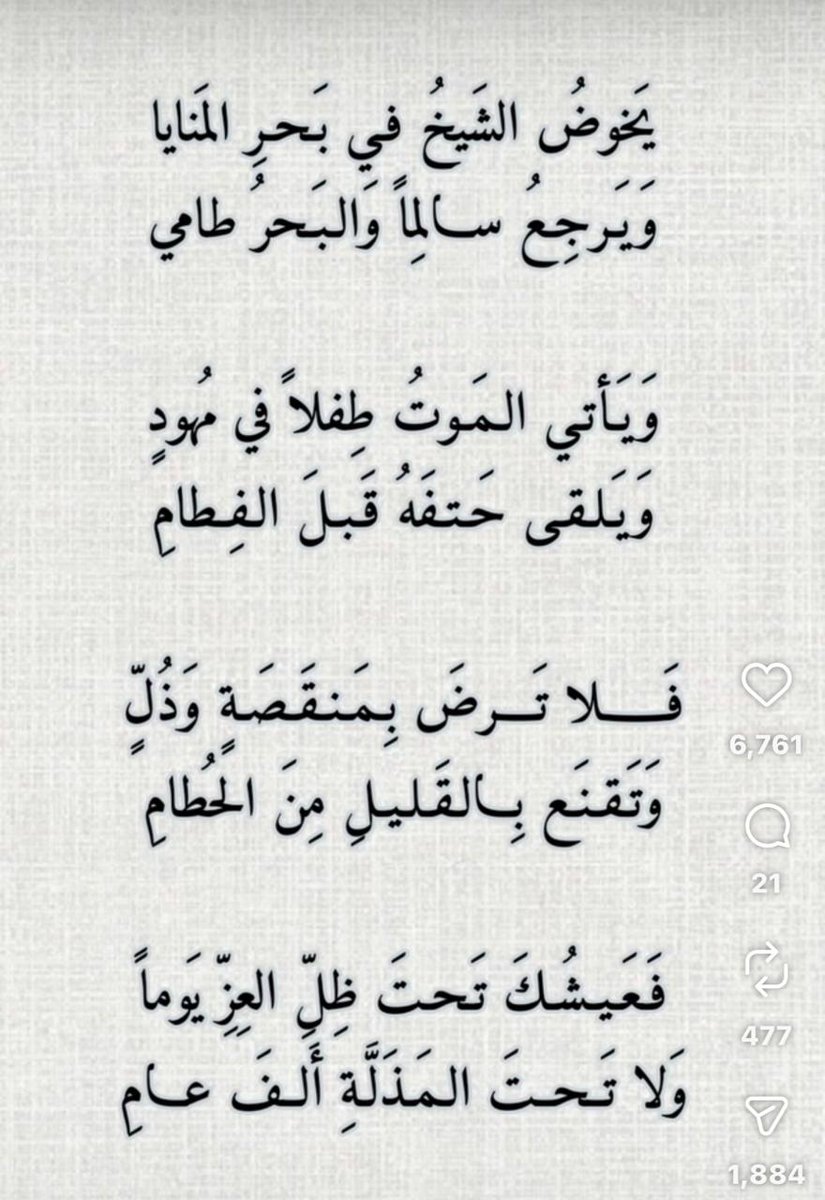 يَخوضُ الشَيخُ في بَحرِ المَنايا
وَيَرجِعُ سالِماً وَالبَحرُ طامي
وَيَأتي المَوتُ طِفلاً في مُهودٍ
وَيَلقى حَتفَهُ قَبلَ الفِطامِ
فَلا تَرضَ بِمَنقَصَةٍ وَذُلٍّ
وَتَقنَع بِالقَليلِ مِنَ الحُطامِ
فَعَيشُكَ تَحتَ ظِلِّ العِزِّ يَوماً
وَلا تَحتَ المَذَلَّةِ أَلفَ عامِ
6,761
21
477
1,884